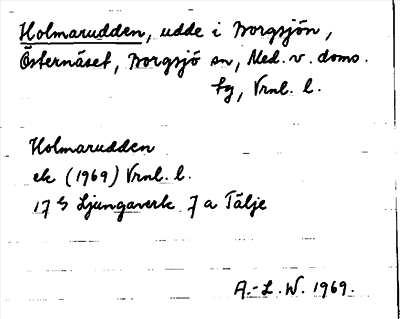 Holmarudden, udde i Borgsjön,
Östernäset, Borgsjö sn, Med. v. doms.
tg, Vrnl. l.
Holmarudden
ek (1969) Vrnl. l.
17 G Ljungaverk 7 a Tälje
A.-L.W. 1969.